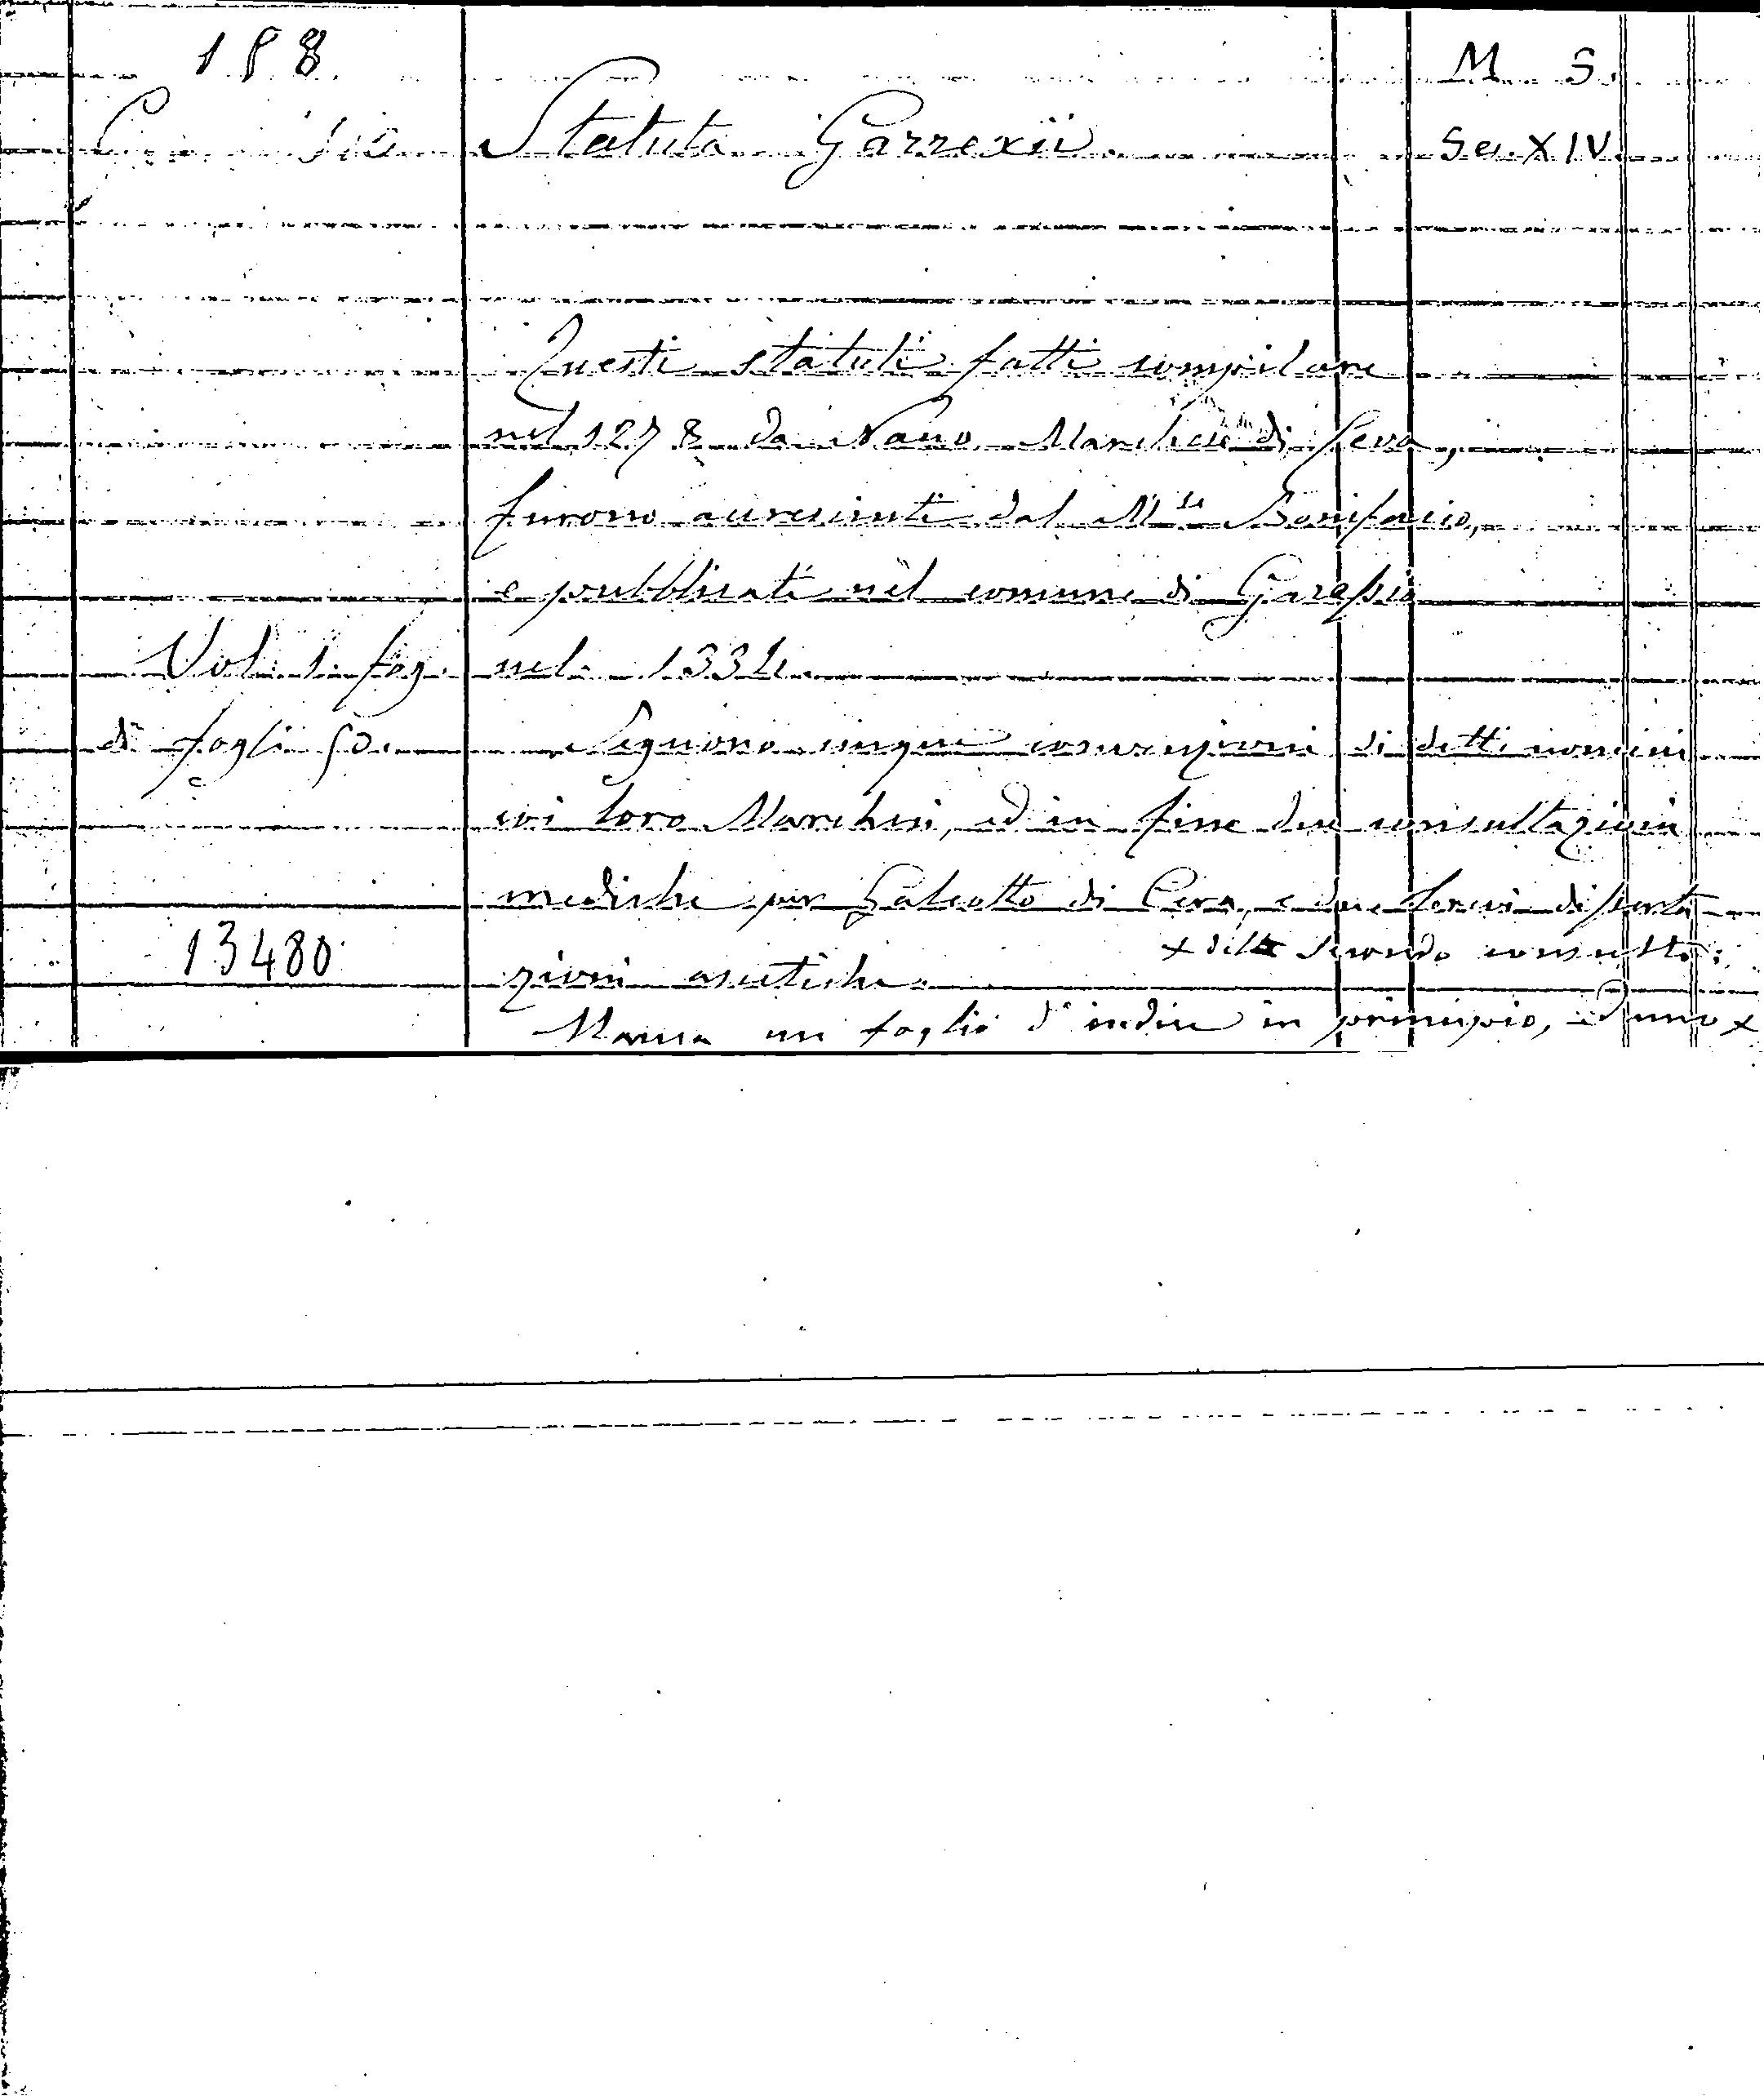 158.
M. S.
Statuta Garrexii.
Sec. XIV.
Questi statuti fatti compilare
nel 1278 da Nano Marchese di Ceva,
furono accresciuti dal M.se Bonifacio,
e pubblicati nel comune di Garessio
Vol. 1. fog. nel 1334.
di fogli 50. Seguono cinque convenzioni di detti uomini
coi loro Marchesi, ed in fine due consultazioni
mediche per Galeotto di Ceva, e due brevi disserta
13480
x della seconda consulta.
zioni ascetiche.
Manca un foglio d'indice in principio, ed uno x